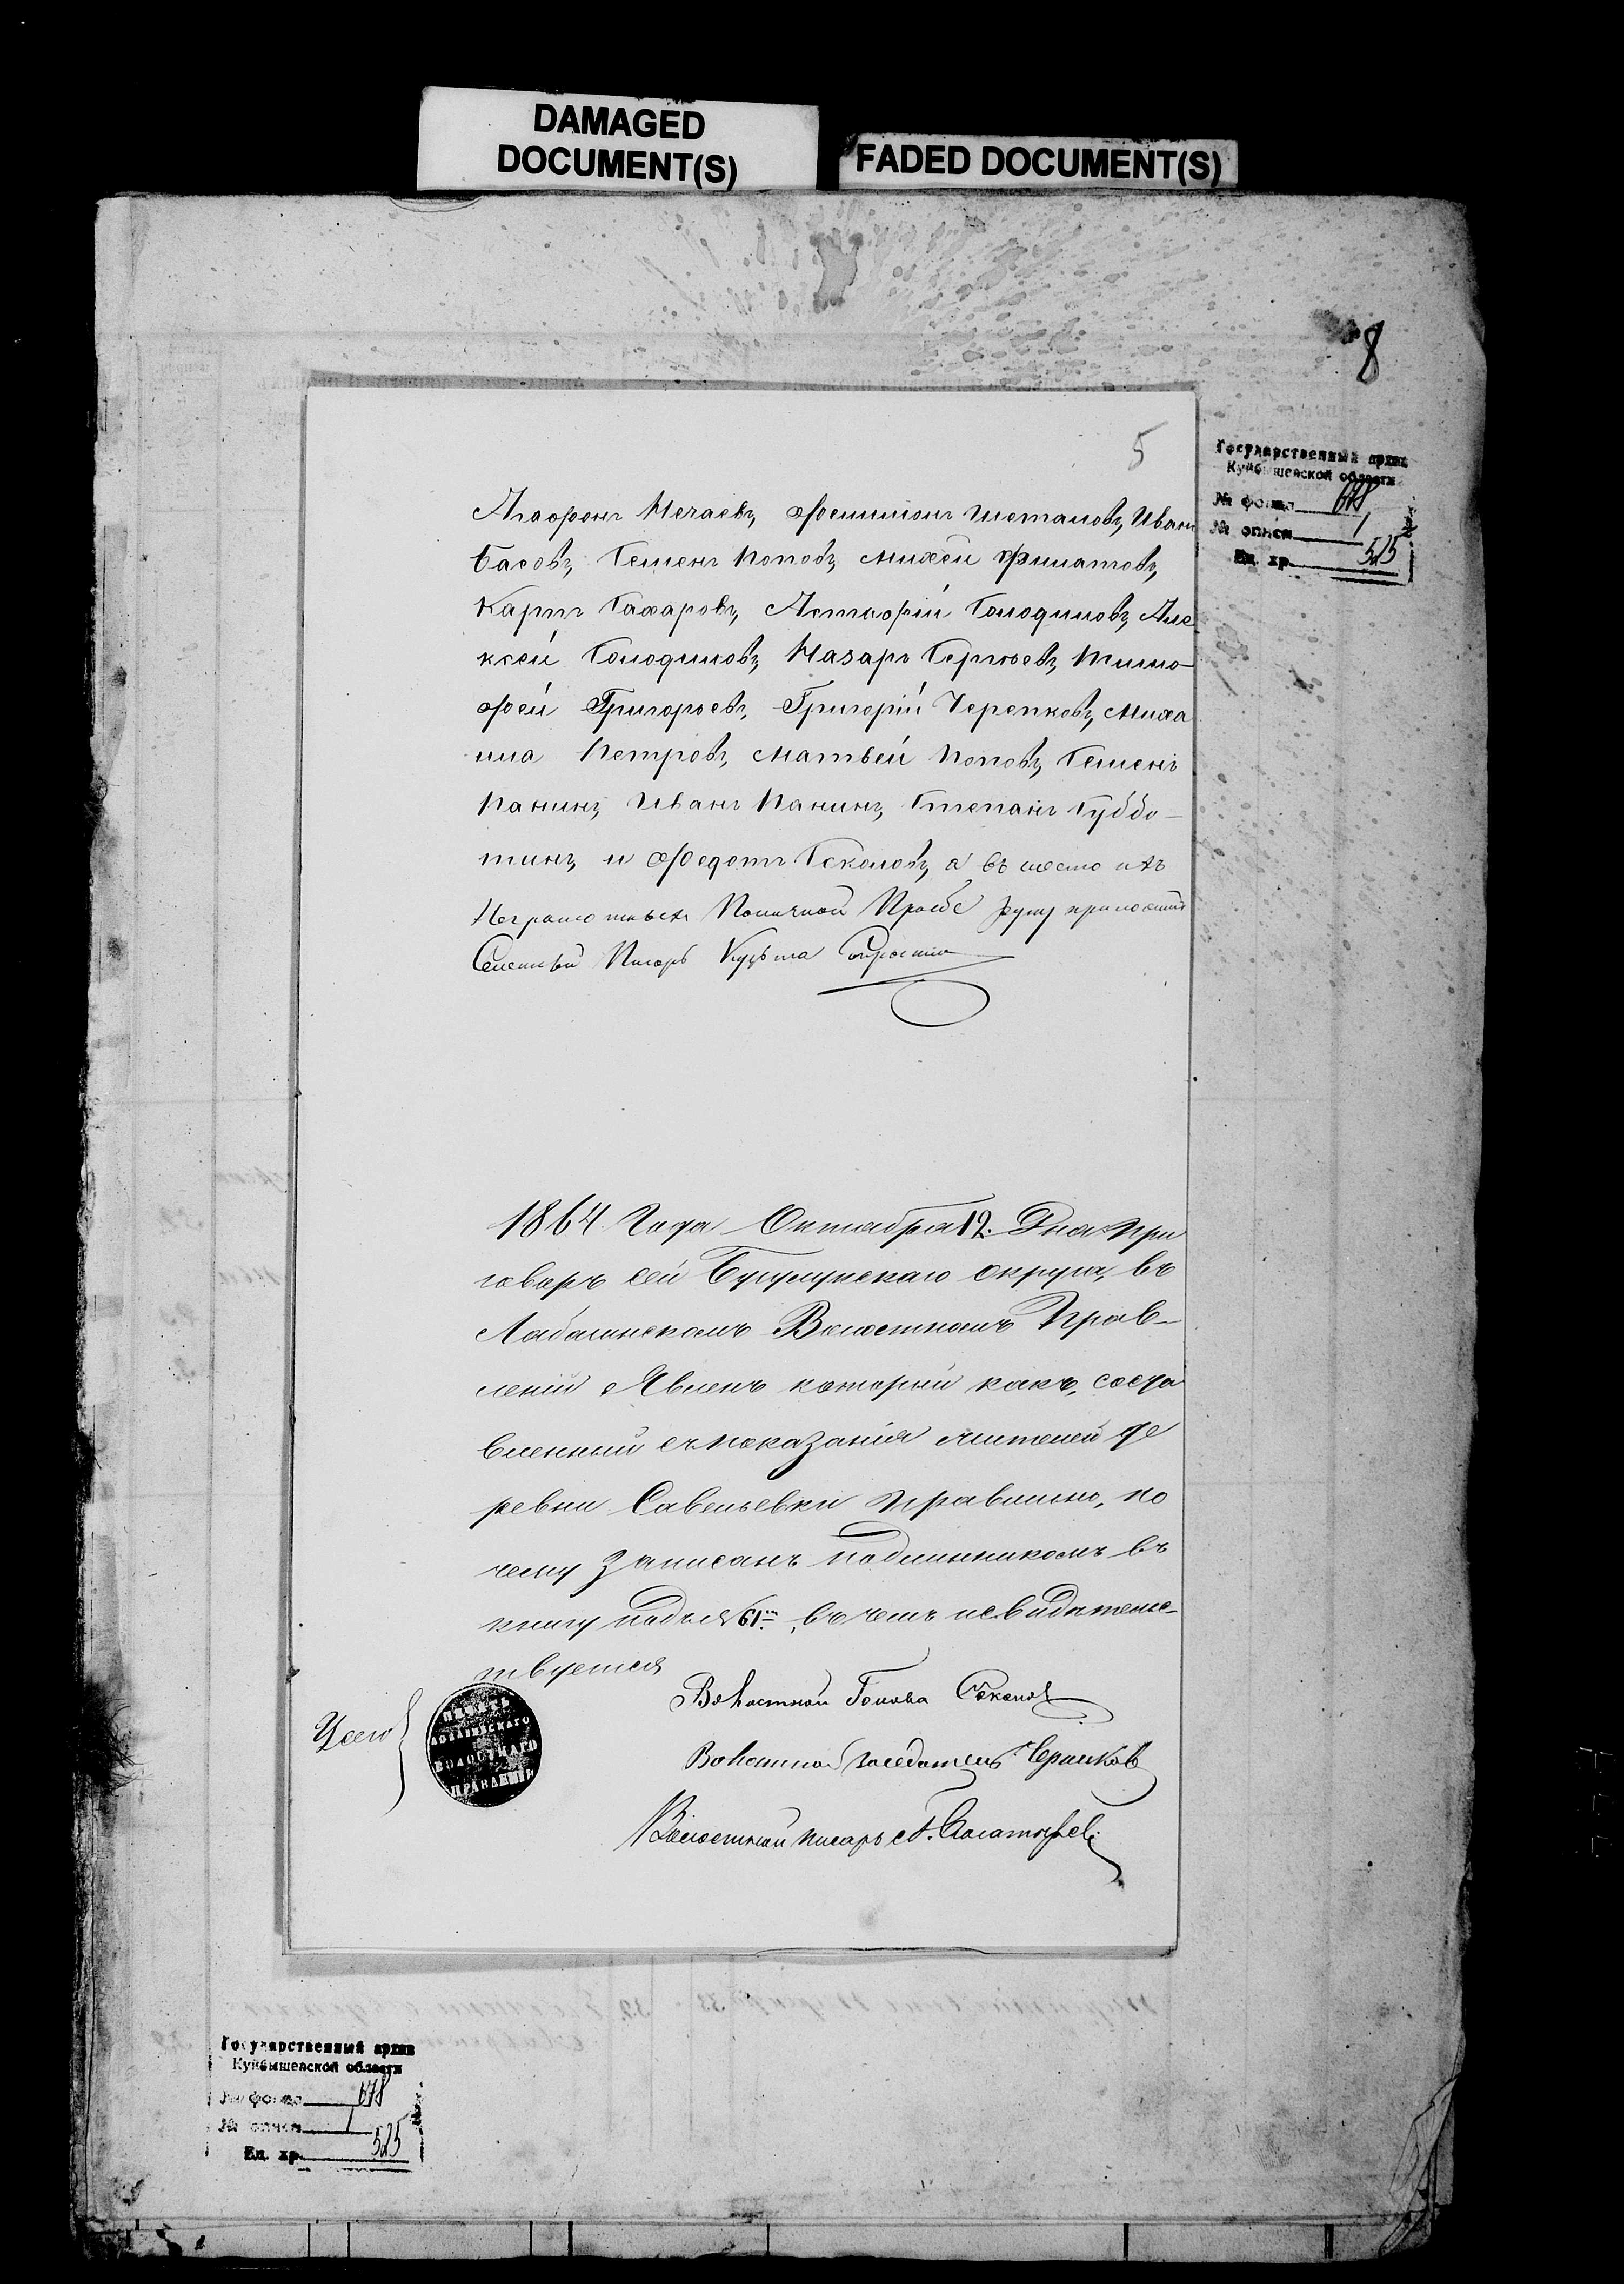 DAMAGED
DOCUMENT(S)
FADED DOCUMENT(S)
8
5
Государственный архив
Куйбышевской области
№ фонда 678
№ описи 1
Ед. хр. 525
Агафонъ Нечаевъ, Филимонъ Шетановъ, Иванъ
Басовъ, Семенъ Поповъ, Михей Филатовъ,
Карпъ Сахаровъ, Астафій Солодиловъ, Але
ксей Солодиловъ, Назаръ Сергѣевъ, Тимо
фей Григорьевъ, Григорій Черепковъ, Миха
ила Петровъ, Матвей Поповъ, Семенъ
Панинъ, Иванъ Панинъ, Степанъ Суббо-
тинъ, и Федотъ Соколовъ, а въ место ихъ
Неграмотныхъ Поличной Прозбе руку приложилъ
Сельный Писарь Кузьма
1864 Года Октября 12. Дня При
говоръ сей Бугурускаго округа, въ
Лабазинскомъ Волостномъ Прав-
леніи Явленъ который какъ, соста
вленный съ показанія жителей де
ревни Савельевки правильно, по
чему записанъ подлинникомъ въ
книгу подъ № 61м, въ чемъ исвидѣтельс-
твуется
Волостной Голова Соколовъ
Волостной Заседатель Черниковъ
Волостной писарь
ПЕЧАТЬ
ЛОБАЗИНСКАГО
ВОЛОСТНАГО
ПРАВЛЕНІЯ
Государственный архив
Куйбышевской области
№ фонда 678
№ описи 1
Ед. хр. 525